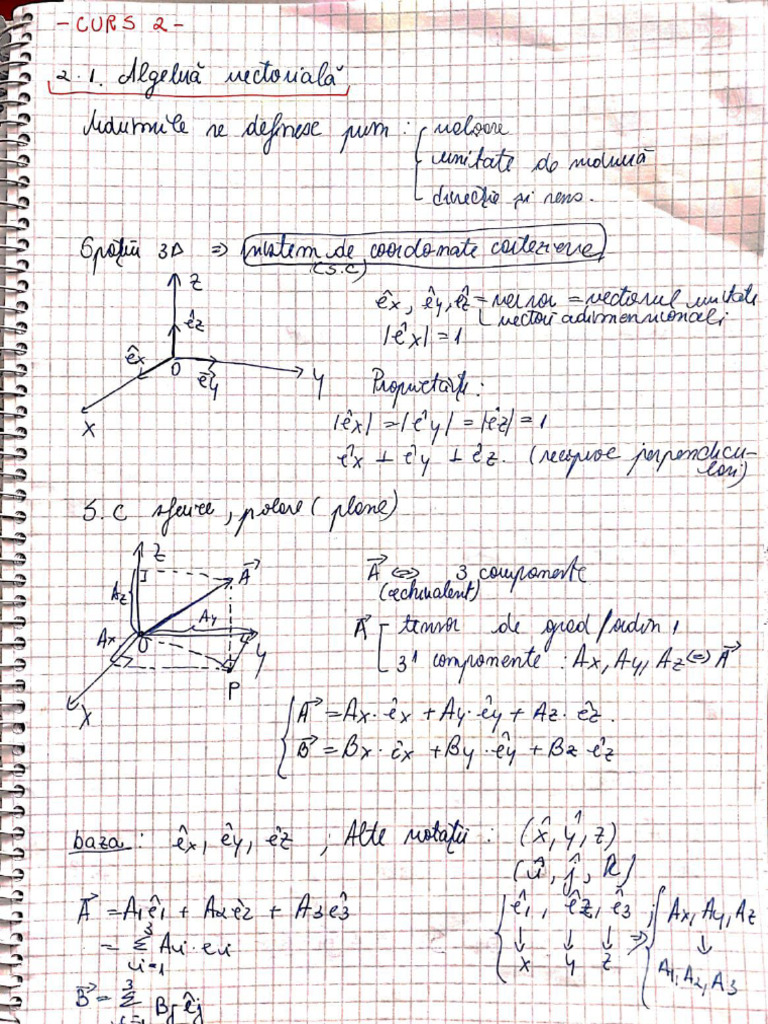 - CURS 2 -
2.1. Algebră vectorială
Mărimile se definesc prin : valoare
unitate de măsură
direcție și sens.
Spațiu 3D ⇒ sistem de coordonate carteziene
(S.C)
z
êz
êx
O
êy
y
x
êx, êy, êz = versor = vectorul unitate
vectori adimensionali
|êx| = 1
Proprietăți:
|êx| = |êy| = |êz| = 1
êx ⊥ êy ⊥ êz. (reciproc perpendicu-
lari)
S.C sferice, polare (plane)
z
A⃗
Az
Ay
Ax
O
y
P
x
A⃗ ⇔ 3 componente
(echivalent)
A⃗ tensor de grad/ordin 1
3^1 componente : Ax, Ay, Az ⇔ A⃗
A⃗ = Ax · êx + Ay · êy + Az · êz.
B⃗ = Bx · êx + By · êy + Bz · êz
baza : êx, êy, êz ; Alte notații : (x̂, ŷ, z)
(î, ĵ, k)
A⃗ = A1ê1 + A2e2 + A3ê3
= Σ Ai · ei
3
i=1
ê1, ê2, ê3 ; Ax, Ay, Az
↓ ↓ ↓ ⇒ ↓
x y z A1, A2, A3
B⃗ = Σ Bj êj
3